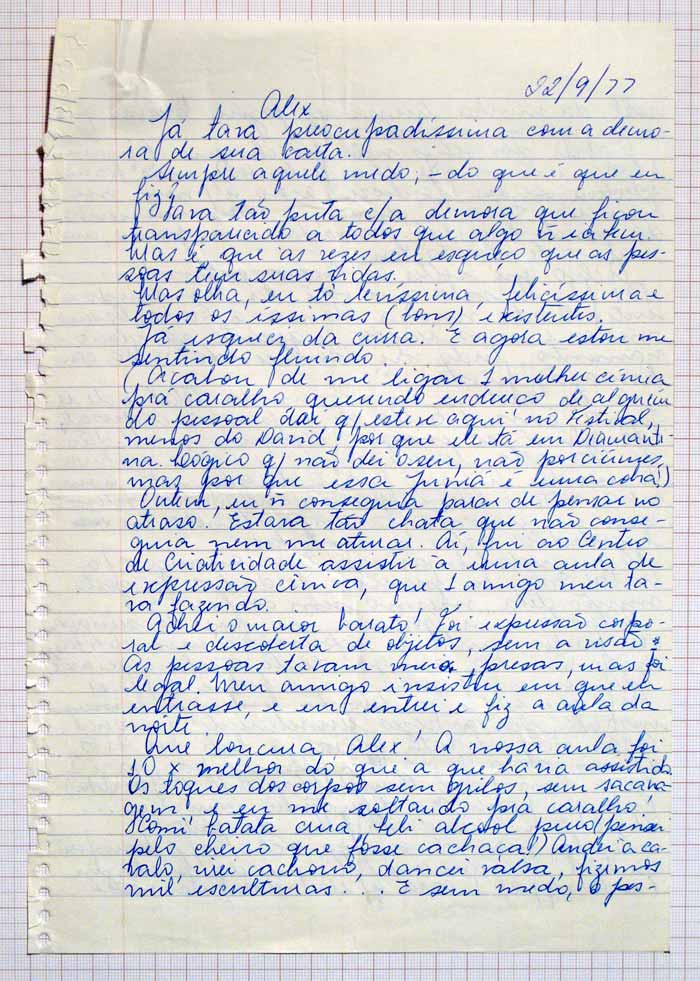 22/9/77
Alex
Já tava preocupadíssima com a demo-
ra de sua carta.
Sempre aquele medo, - do que é que eu
fiz?
Tava tão puta c/a demora que ficou
transparecido a todos que algo ñ ia bem.
Mas é, que as vezes eu esqueço que as pes-
soas tem suas vidas.
Mas olha, eu tô leníssima, felicíssima e
todos os íssimas (bons) existentes.
Já esqueci da cuca. E agora estou me
sentindo fluindo.
(Acabou de me ligar 1 mulher cínica
prá caralho querendo endereço de alguém
do pessoal daí q/ esteve aqui no Festival,
menos do David, porque ele tá em Diamanti-
na. Lógico q/ não dei o seu, não por ciúmes,
mas por que essa é uma cobra!)
Ontem, eu ñ conseguia parar de pensar no
atraso. Estava tão chata que não conse-
guia nem me aturar. Aí, fui ao Centro
de Criatividade assistir a uma aula de
expressão cênica, que 1 amigo meu ta-
va fazendo.
Achei o maior barato! Foi expressão corpo-
ral e descoberta de objetos, sem a visão.
As pessoas tavam meio presas, mas foi
legal. Meu amigo insistiu em que eu
entrasse, e eu entrei e fiz a aula da
noite.
Que loucura, Alex! A nossa aula foi
10 x melhor do que a que havia assistido.
Os toques dos corpos sem grilos, sem sacana-
gem e eu me soltando prá caralho!
Comi batata crua, bebi alcool puro (pensei
pelo cheiro que fosse cachaça!) Andei a ca-
valo, virei cachorro, dancei valsa, fizemos
mil esculturas... E sem medo, o pes-